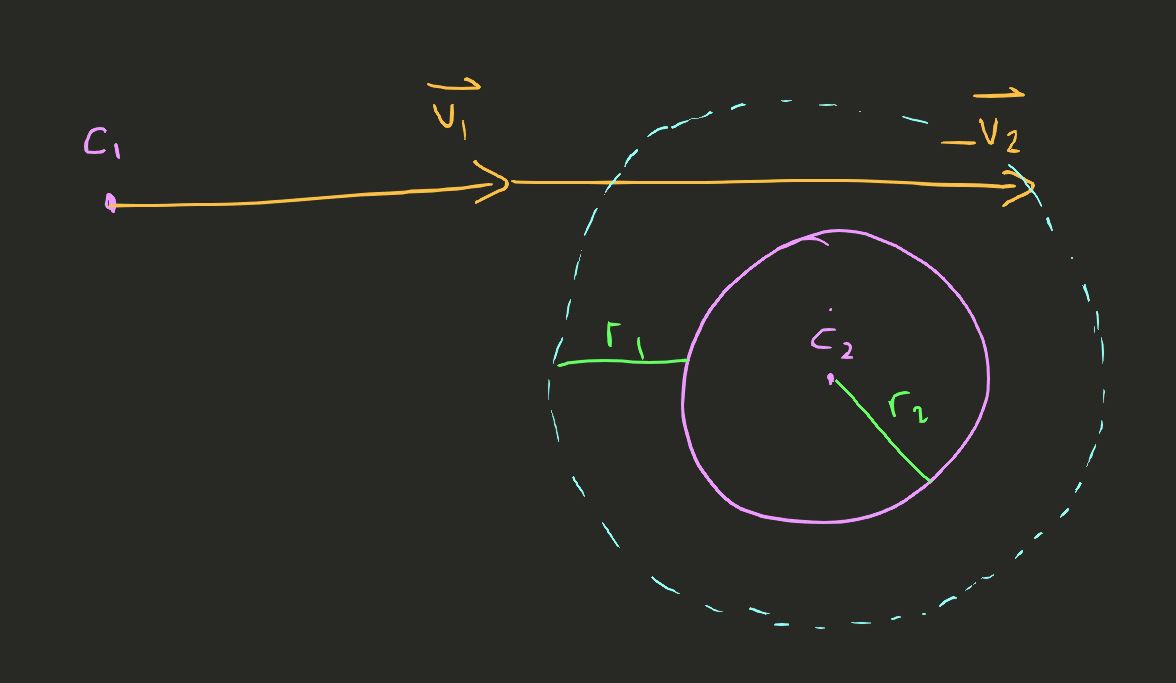 C₁
V₁
-V₂
r₁
C₂
r₂